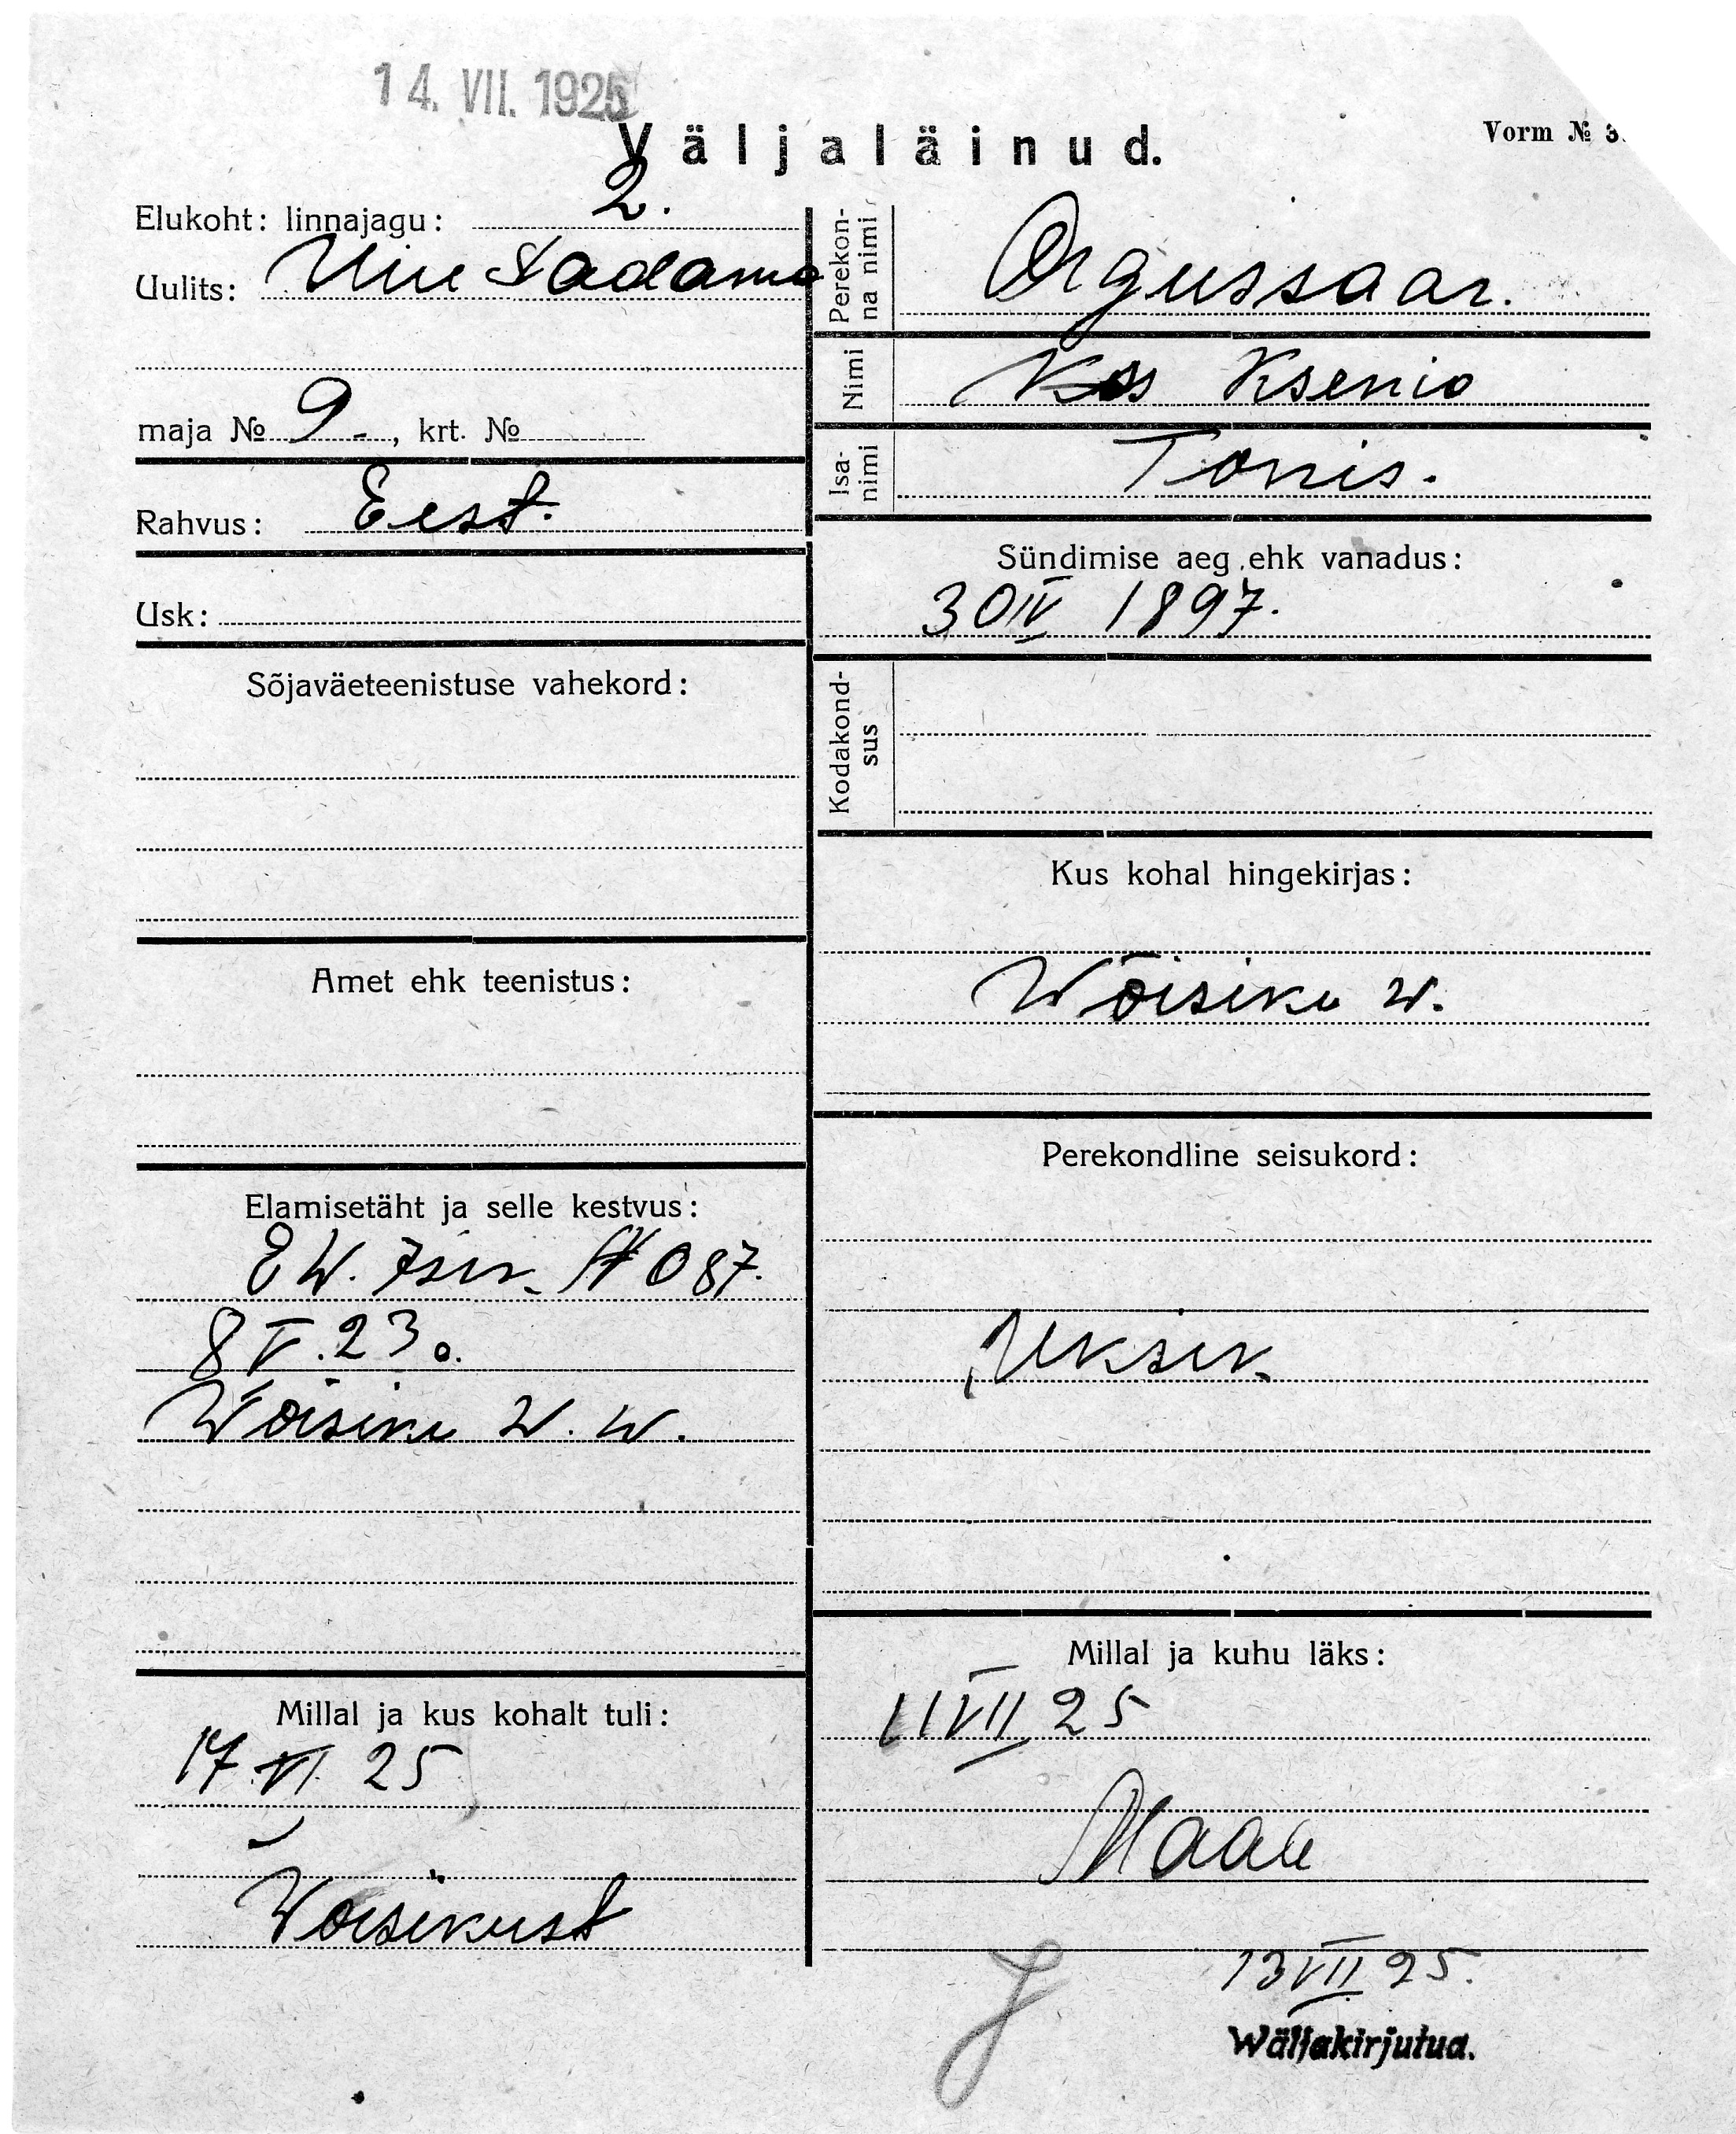 14. VII. 1925
Väljaläinud.
Vorm № 3.
Elukoht: linnajagu: 2.
Uulits: Uue Sadama
maja № 9 -, krt. №
Rahvus: Eest.
Usk:
Sõjaväeteenistuse vahekord:
Amet ehk teenistus:
Elamisetäht ja selle kestvus:
EW. № 087.
8 V. 23 a.
Wõisiku W. W.
Millal ja kus kohalt tuli:
17 VI 25
Wõisikust
Perekon-
na nimi
Orgussaar.
Nimi
Ksenia
Isa-
nimi
Tõnis.
Sündimise aeg ehk vanadus:
30 IV 1897.
Kodakond-
sus
Kus kohal hingekirjas:
Wõisiku w.
Perekondline seisukord:
Üksik
Millal ja kuhu läks:
11 VII 25
Maale
13 VII 25.
Wäljakirjutud.